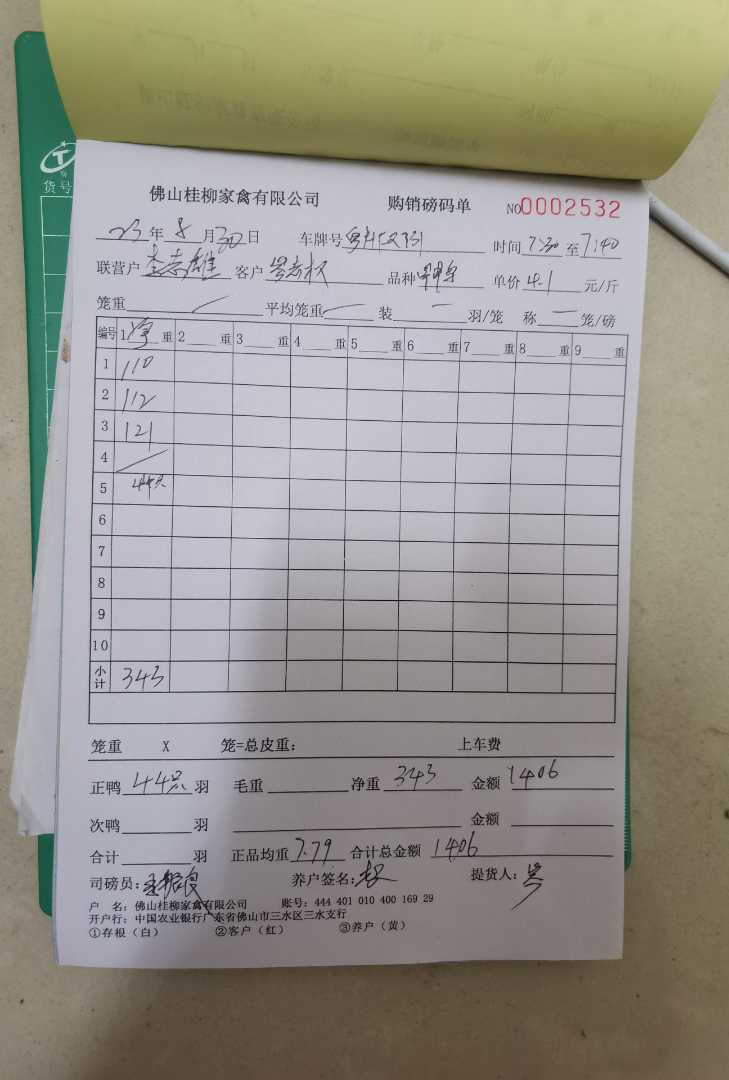 货号
佛山桂柳家禽有限公司 购销磅码单 NO0002532
23年8月30日 车牌号 时间7:30至7:40
联营户李志雄 客户 品种 单价4.1元/斤
笼重 平均笼重 装 羽/笼 称 笼/磅
编号 1净重 2 重 3 重 4 重 5 重 6 重 7 重 8 重 9 重
1 110
2 112
3 121
4
5 44只
6
7
8
9
10
小计 343
笼重 X 笼=总皮重: 上车费
正鸭44只羽 毛重 净重343 金额1406
次鸭 羽 金额
合计 羽 正品均重7.79 合计总金额1406
司磅员: 养户签名: 提货人:
户 名: 佛山桂柳家禽有限公司 账号: 444 401 010 400 169 29
开户行: 中国农业银行广东省佛山市三水区三水支行
①存根(白) ②客户(红) ③养户(黄)